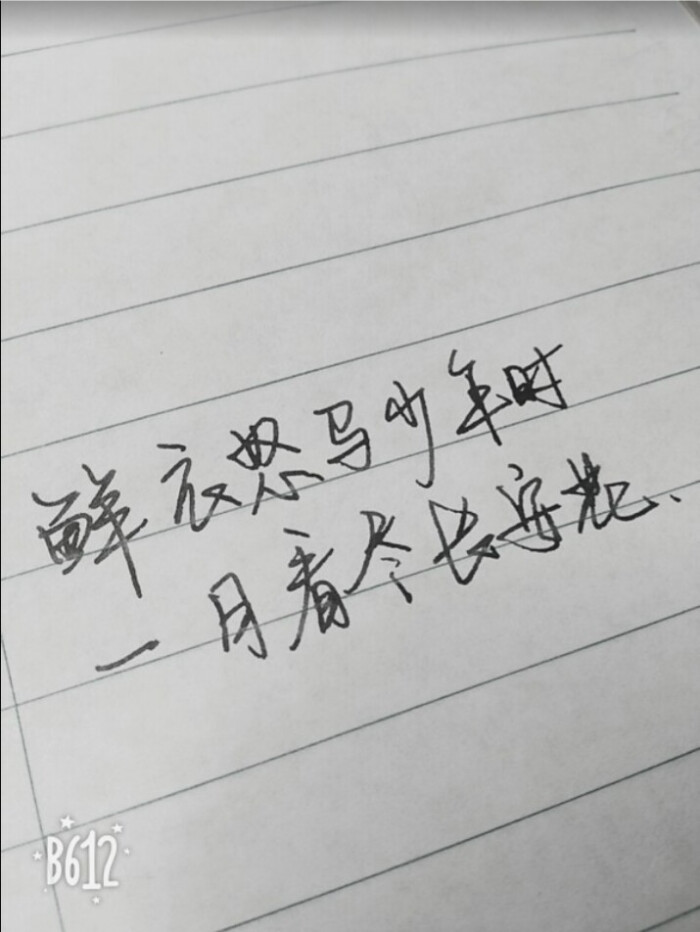 鲜衣怒马少年时
一日看尽长安花、
B612